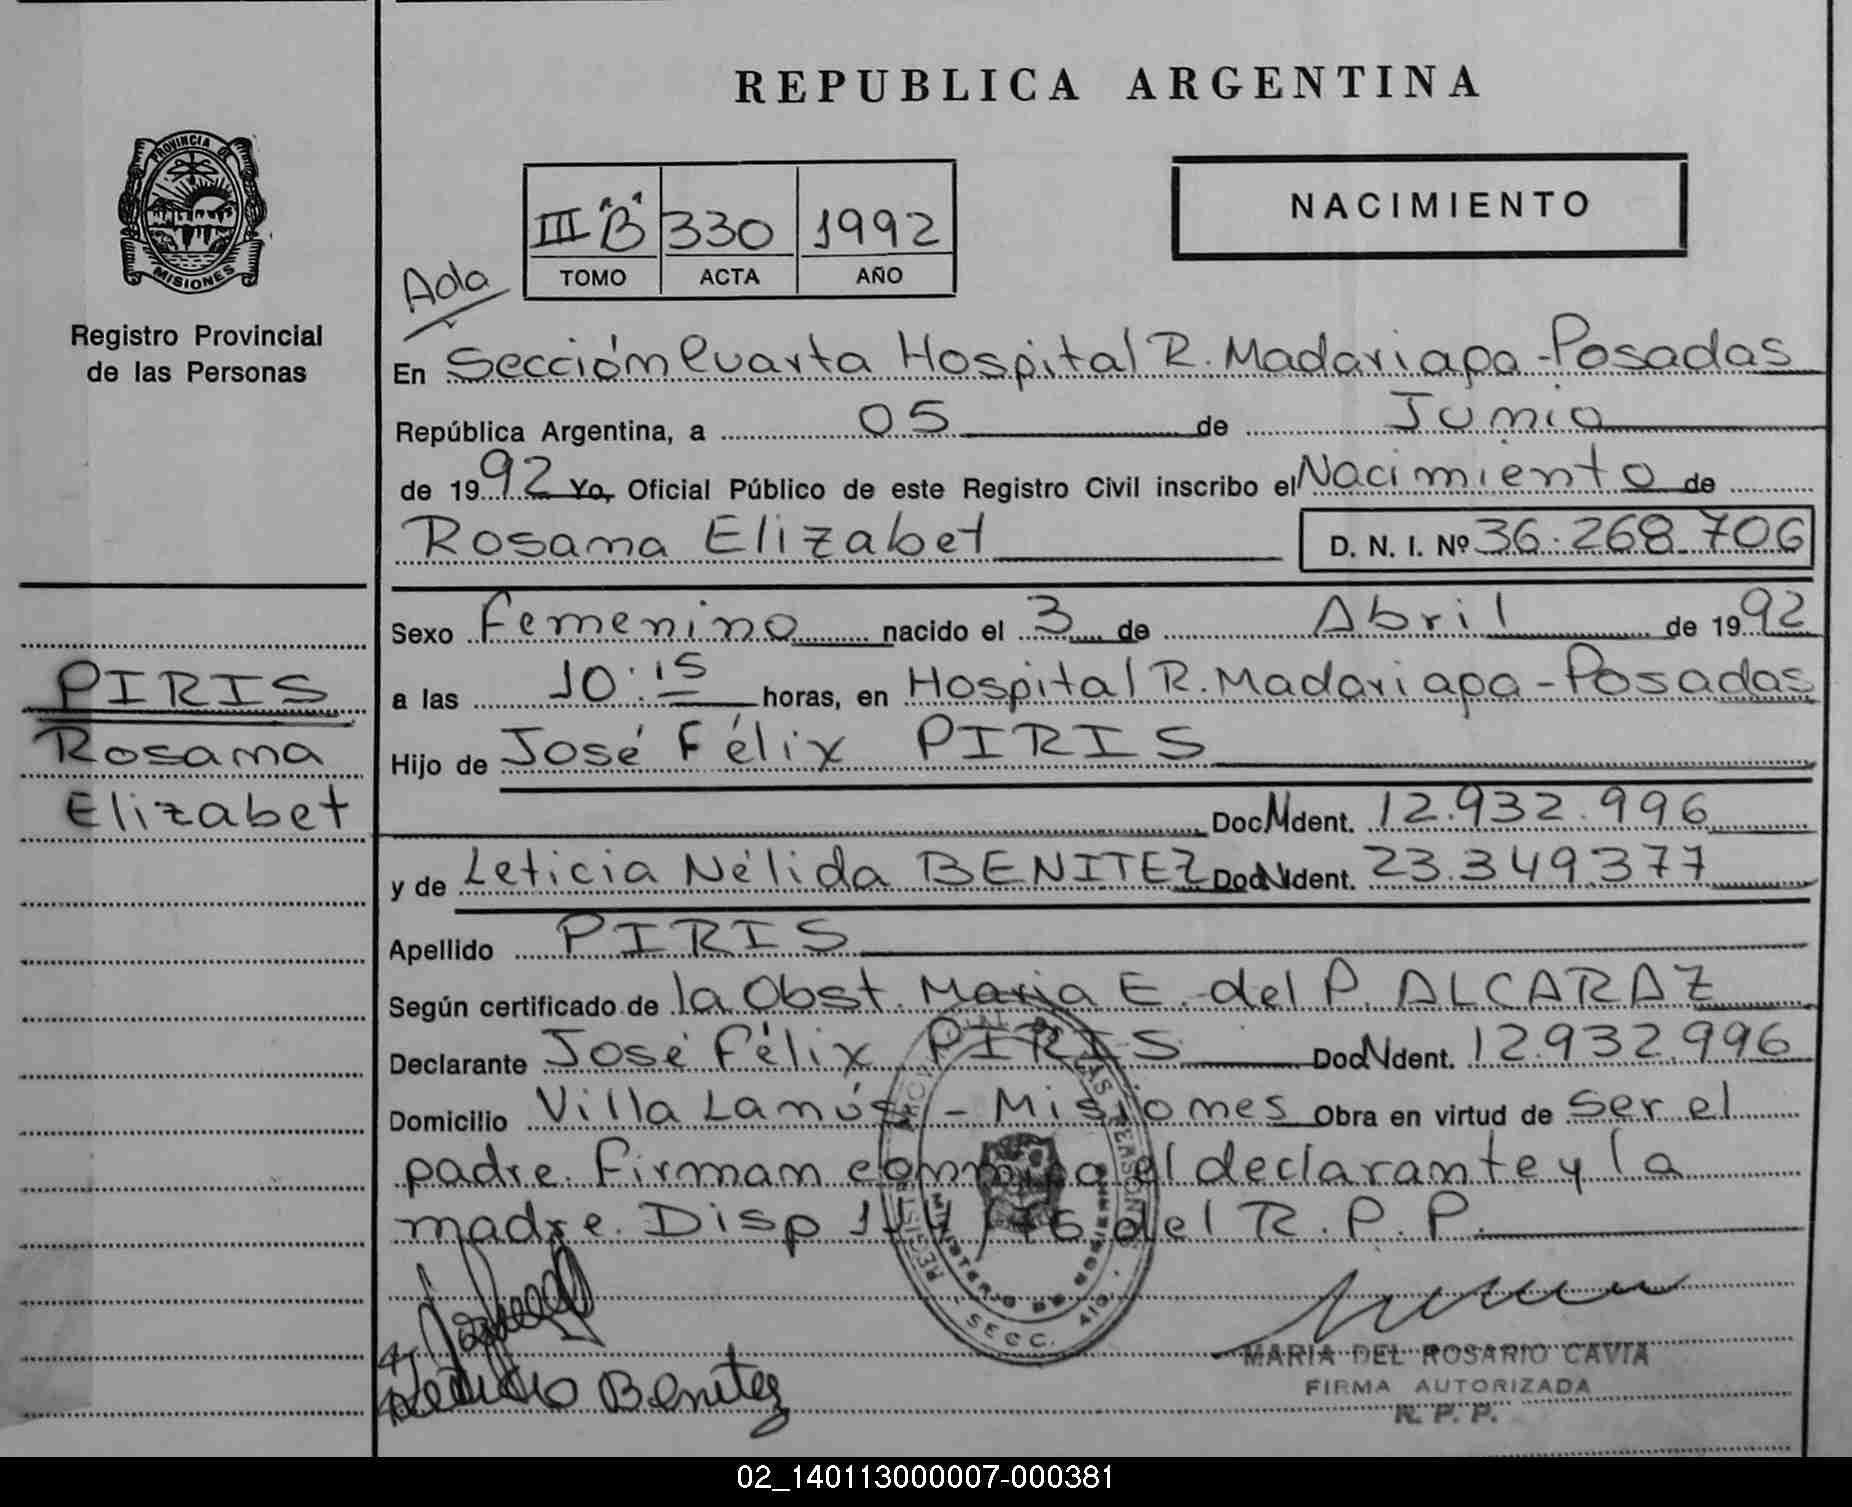 REPUBLICA ARGENTINA
PROVINCIA DE
MISIONES
Registro Provincial
de las Personas
III "B" 330 1992
TOMO ACTA AÑO
NACIMIENTO
Ada
En Sección Cuarta Hospital R. Madariaga - Posadas
República Argentina, a 05 de Junio
de 1992 Yo, Oficial Público de este Registro Civil inscribo el Nacimiento de
Rosana Elizabet D. N. I. Nº 36.268.706
Sexo Femenino nacido el 3 de Abril de 1992
PIRIS
Rosana
Elizabet
a las 10:15 horas, en Hospital R. Madariaga - Posadas
Hijo de José Félix PIRIS
Doc. Ident. 12.932.996
y de Leticia Nélida BENITEZ Doc. Ident. 23.349.377
Apellido PIRIS
Según certificado de la Obst. Maria E. del P. ALCARAZ
Declarante José Félix PIRIS Doc. Ident. 12.932.996
Domicilio Villa Lanús - Misiones Obra en virtud de ser el
padre. Firman conmigo el declarante y la
madre. Disp del R.P.P.
MINISTERIO DE GOBIERNO
SECC. 4
Benitez
MARIA DEL ROSARIO CAVIA
FIRMA AUTORIZADA
R. P. P.
02_140113000007-000381